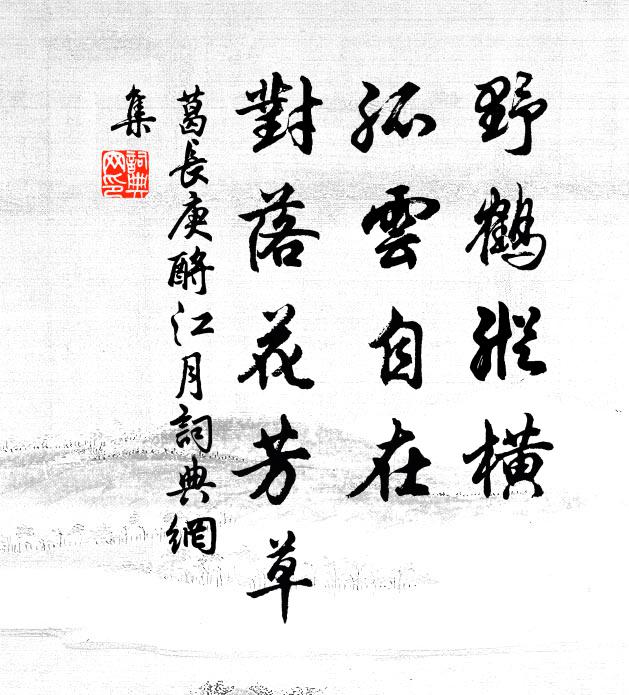 野鶴縱橫
孤雲自在
對落花芳草
葛長庚酹江月詞典網
集
詞典
网印